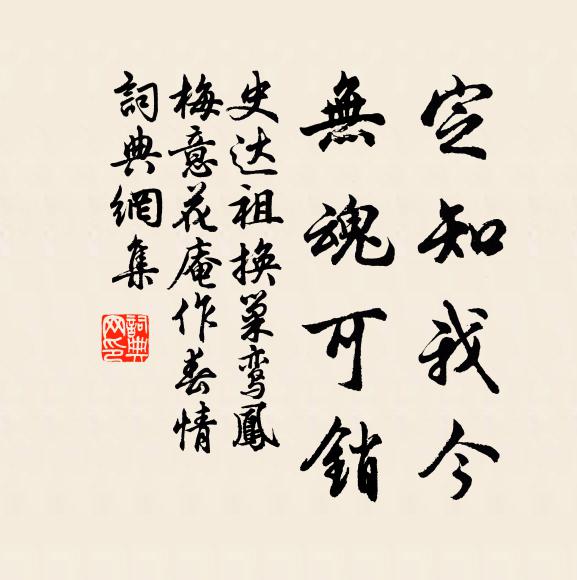 定知我今
無魂可銷
史达祖換巢鸾鳳
梅意花庵作春情
詞典網集
詞典网印